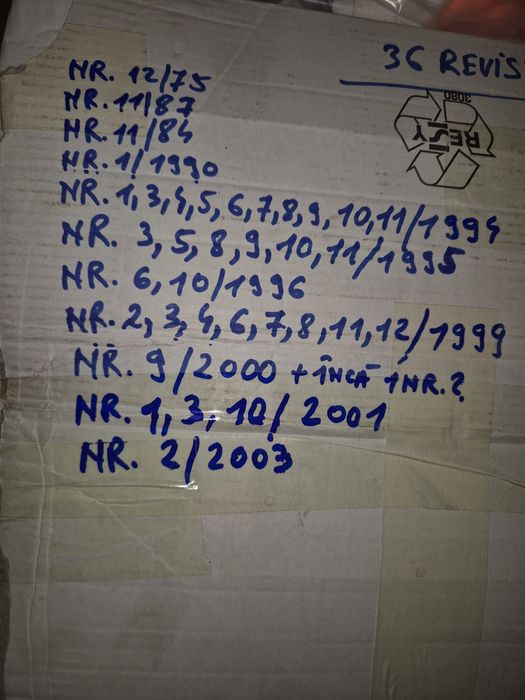 36 REVIS
NR. 12/75
NR. 11/87
NR. 11/84
NR. 1/1990
NR. 1,3,4,5,6,7,8,9,10,11/1994
NR. 3,5,8,9,10,11/1995
NR. 6,10/1996
NR. 2,3,4,6,7,8,11,12/1999
NR. 9/2000 + ÎNCĂ 1 NR.?
NR. 1,3,10/2001
NR. 2/2003
3080
RESY